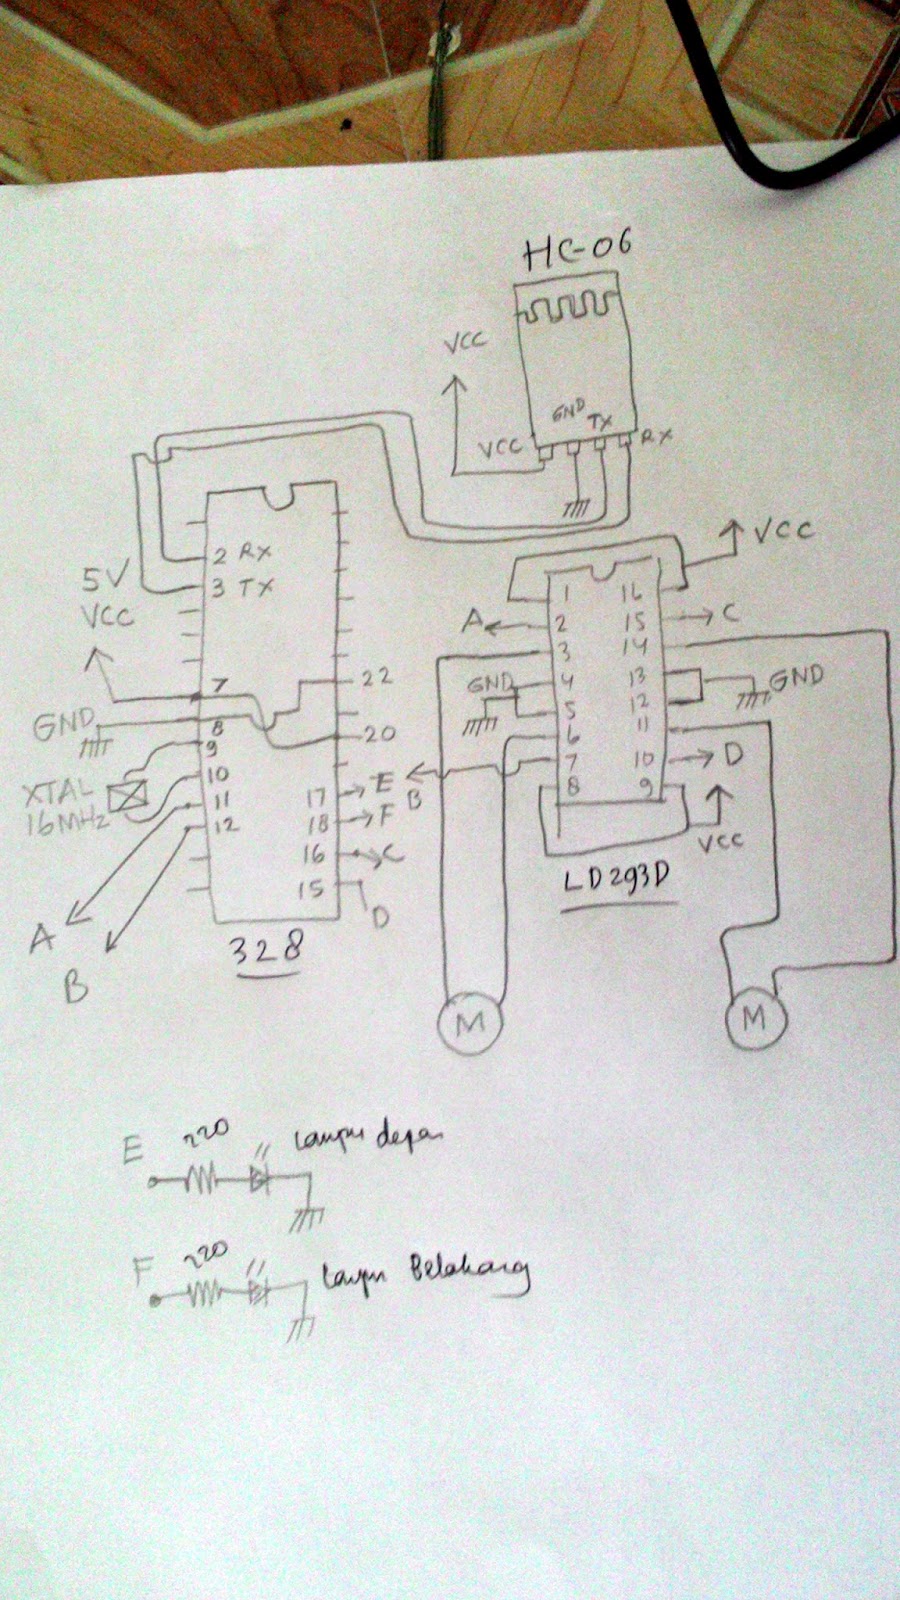 HC-06
VCC
GND
TX
VCC
RX
2 RX
3 TX
5V
VCC
7
22
GND
8
20
9
XTAL
16MHz
10
11
12
17 E
18 F
16 C
15
D
A
B
328
VCC
1 16
A 2 15 C
3 14
GND 4 13 GND
5 12
6 11
B 7 10 D
8 9
VCC
LD293D
M
M
E 220 Lampu depan
F 220 Lampu Belakang